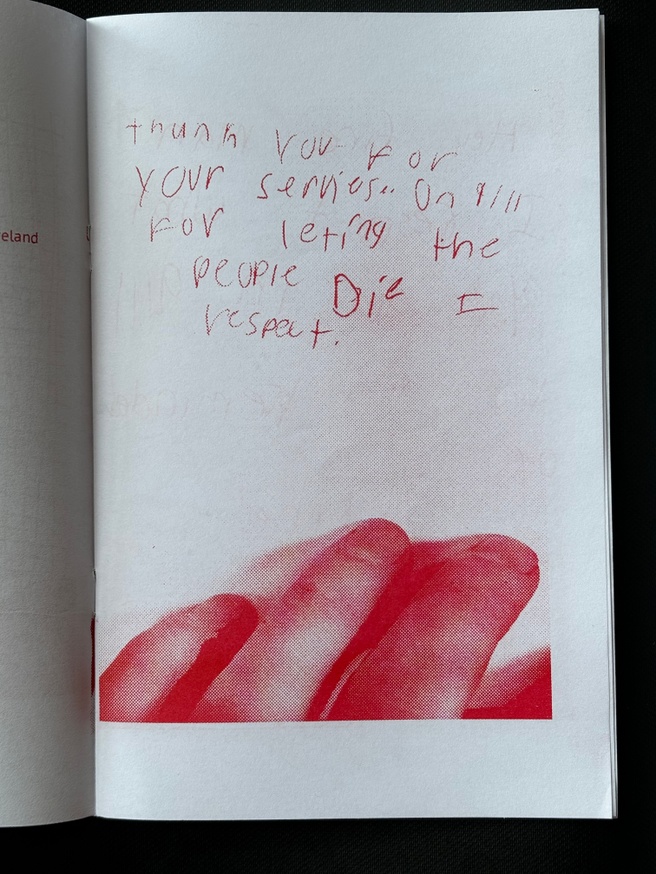 thank you for
your servies.. On 9/11
for leting the
people Die I
respect.
eland